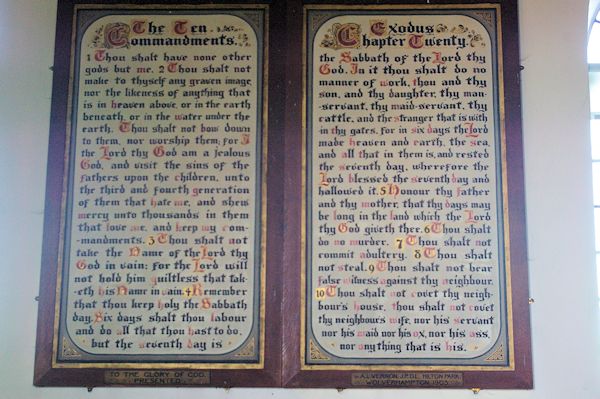 The Ten
Commandments.
1 Thou shalt have none other
gods but me. 2 Thou shalt not
make to thyself any graven image
nor the likeness of anything that
is in heaven above, or in the earth
beneath, or in the water under the
earth. Thou shalt not bow down
to them, nor worship them: for I
the Lord thy God am a jealous
God, and visit the sins of the
fathers upon the children, unto
the third and fourth generation
of them that hate me, and shew
mercy unto thousands in them
that love me, and keep my com-
-mandments. 3 Thou shalt not
take the Name of the Lord thy
God in vain: for the Lord will
not hold him guiltless that tak-
eth his Name in vain. 4 Remember
that thou keep holy the Sabbath
day. Six days shalt thou labour
and do all that thou hast to do,
but the seventh day is
TO THE GLORY OF GOD.
PRESENTED
Exodus
Chapter Twenty.
the Sabbath of the Lord thy
God. In it thou shalt do no
manner of work, thou and thy
son, and thy daughter, thy man-
-servant, thy maid-servant, thy
cattle, and the stranger that is with-
-in thy gates, for in six days the Lord
made heaven and earth, the sea,
and all that in them is, and rested
the seventh day, wherefore the
Lord blessed the seventh day and
hallowed it. 5 Honour thy father
and thy mother, that thy days may
be long in the land which the Lord
thy God giveth thee. 6 Thou shalt
do no murder. 7 Thou shalt not
commit adultery. 8 Thou shalt
not steal. 9 Thou shalt not bear
false witness against thy neighbour.
10 Thou shalt not covet thy neigh-
bour's house, thou shalt not covet
thy neighbour's wife, nor his servant
nor his maid nor his ox, nor his ass,
nor anything that is his.
A.L. VERNON, J.P. D.L. HILTON PARK
WOLVERHAMPTON 1903